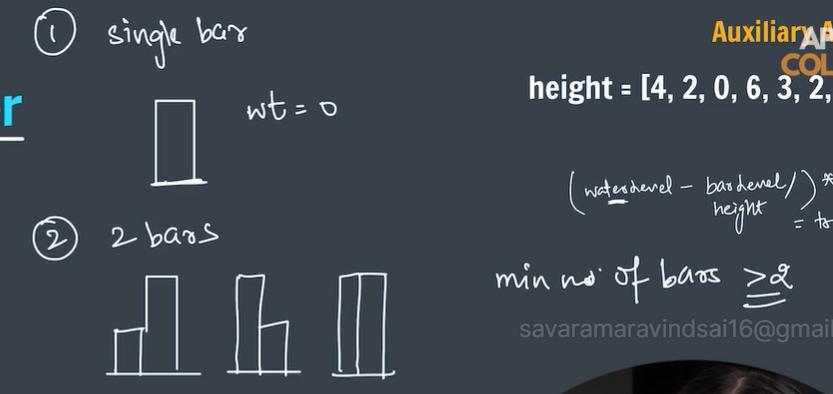 ① single bar
wt = 0
② 2 bars
r
Auxiliary A
AP
COL
height = [4, 2, 0, 6, 3, 2,
(waterlevel - barlevel/) *
height
=
min no. of bars >2
savaramaravindsai16@gmail